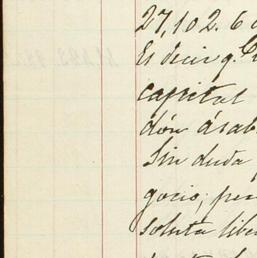 27,102.6
Es decir q.
capital
dón á sab
Sin duda
gocio; per
soluta libe